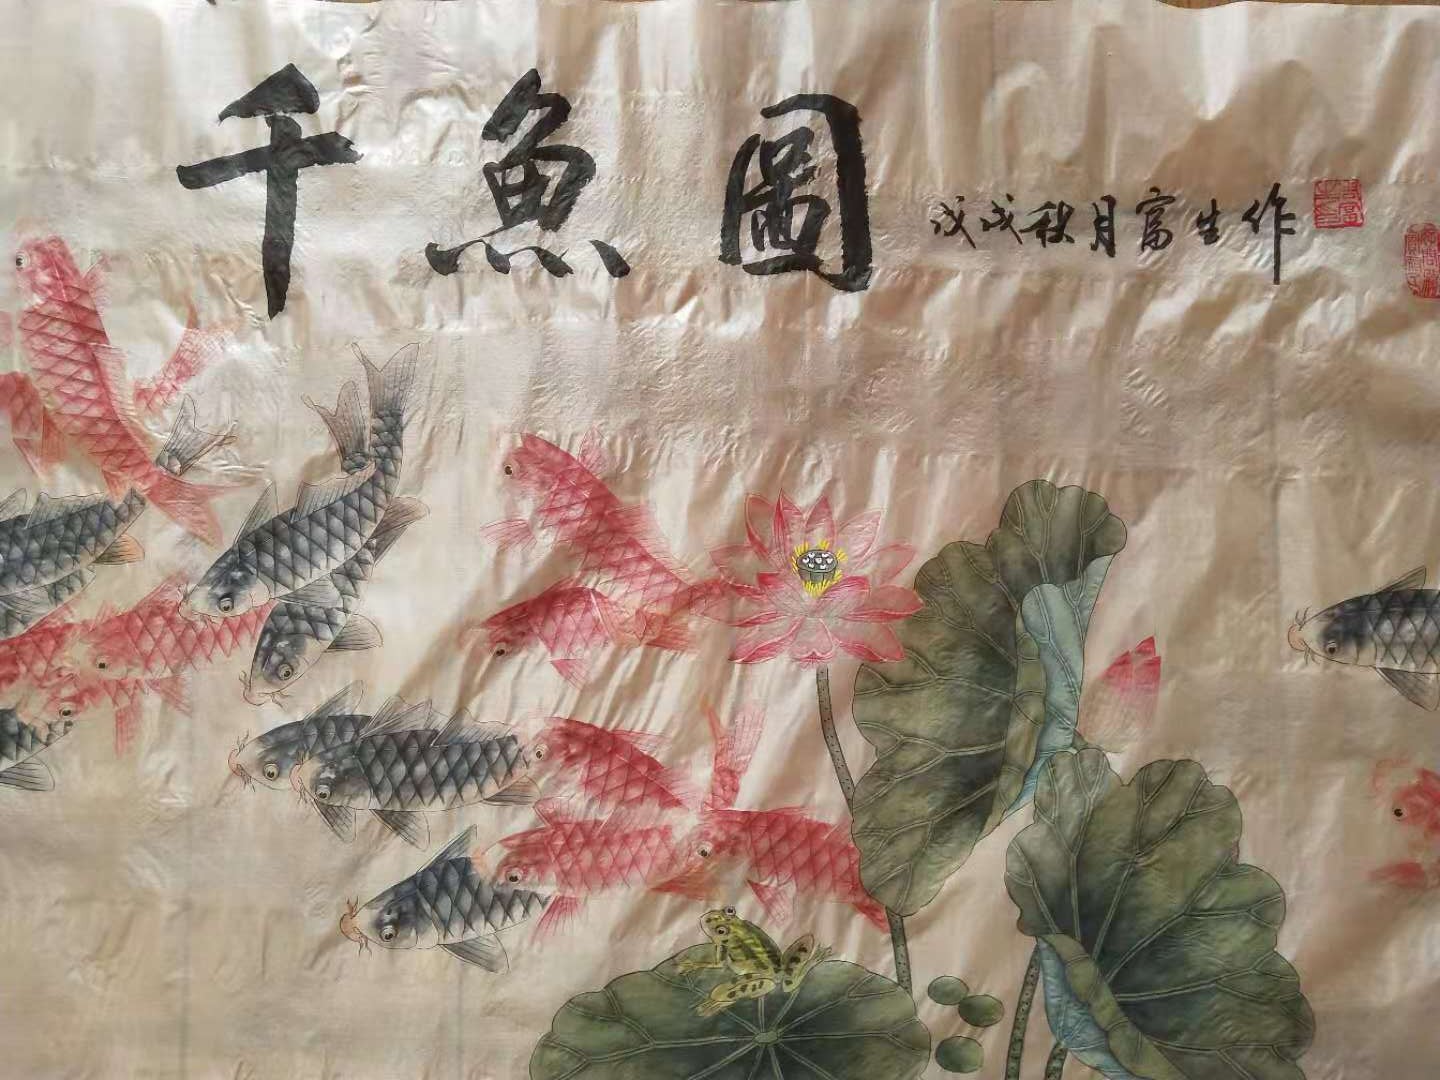 千魚圖
戊戌秋月富生作